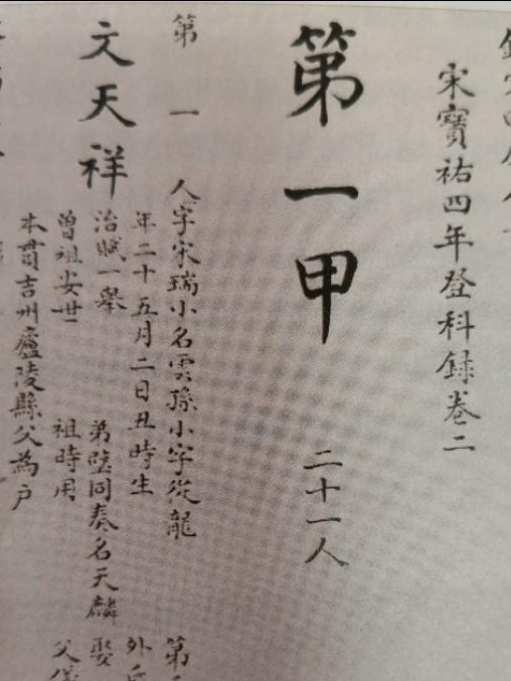 宋寶祐四年登科録卷二
第一甲 二十一人
第一人字宋瑞小名雲孫小字從龍 第
年二十五月二日丑時生 外
文天祥
治賦一舉 弟璧同奏名天麟 娶
曾祖安世 祖時用 父儀
本貫吉州廬陵縣父為户